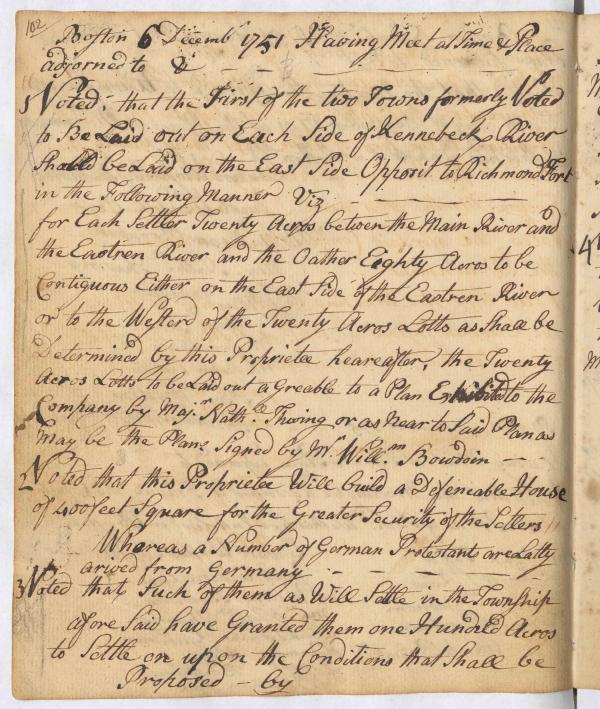 102
Boston 6 Decemb.r 1751 Having Meet at Time & Place
adjorned to & — — — — —
1 Voted, that the First of the two Towns formerly Voted
to Be Laid out on Each Side of Kennebeck River
Shall be Laid on the East Side Opposit to Richmond Fort
in the Following Manner Viz — — — —
for Each Settler Twenty Acros betwen the Main River and
the Eastren River and the Oather Eighty Acros to be
Contiguous Either on the East Side of the Eastren River
or to the Westerd of the Twenty Acros Lotts as Shall be
Determined by this Proprietee heareafter, the Twenty
Acros Lotts to be Laid out a Greable to a Plan Exhibited to the
Company by Maj.r Nath.ll Thwing or as Near to Said Plan as
may be the Plan Signed by M.r Will.m Bowdoin — —
2 Voted that this Proprietee Will build a Defencable House
of 400 feet Square for the Greater Security of the Setlers
Whereas a Number of German Protestants are Latly
arived from Germany — — — — —
3 Voted that Such of them as Will Settle in the Township
afore Said have Granted them one Hundred Acros
to Settle on upon the Conditions that Shall be
Proposed — by